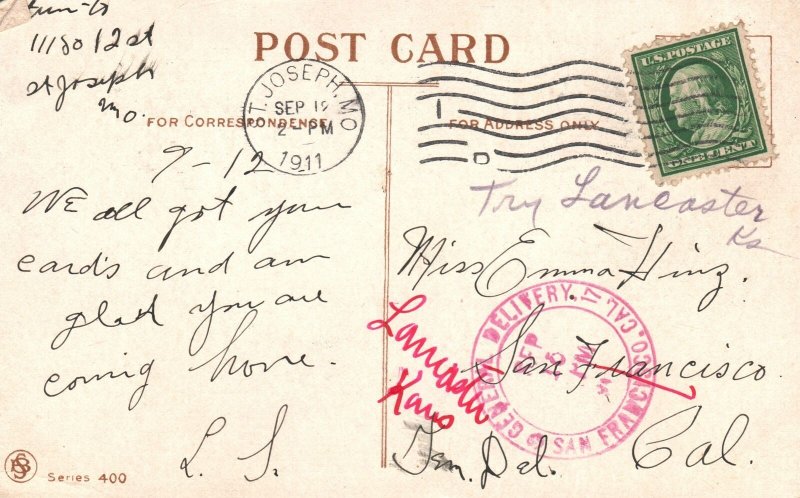 1118 So 12 st
St Joseph
Mo.
POST CARD
FOR CORRESPONDENCE.
FOR ADDRESS ONLY.
ST. JOSEPH, MO
SEP 12
2-PM
1911
U.S. POSTAGE
ONE CENT
9-12
We all got your
cards and am
glad you are
coming home.
L. S.
Try Lancaster
Ks
Miss Emma Hinz.
San Francisco.
Cal.
Gen. Del.
Lancaster
Kans
GENERAL DELIVERY.
SAN FRANCISCO. CAL.
SEP
Series 400